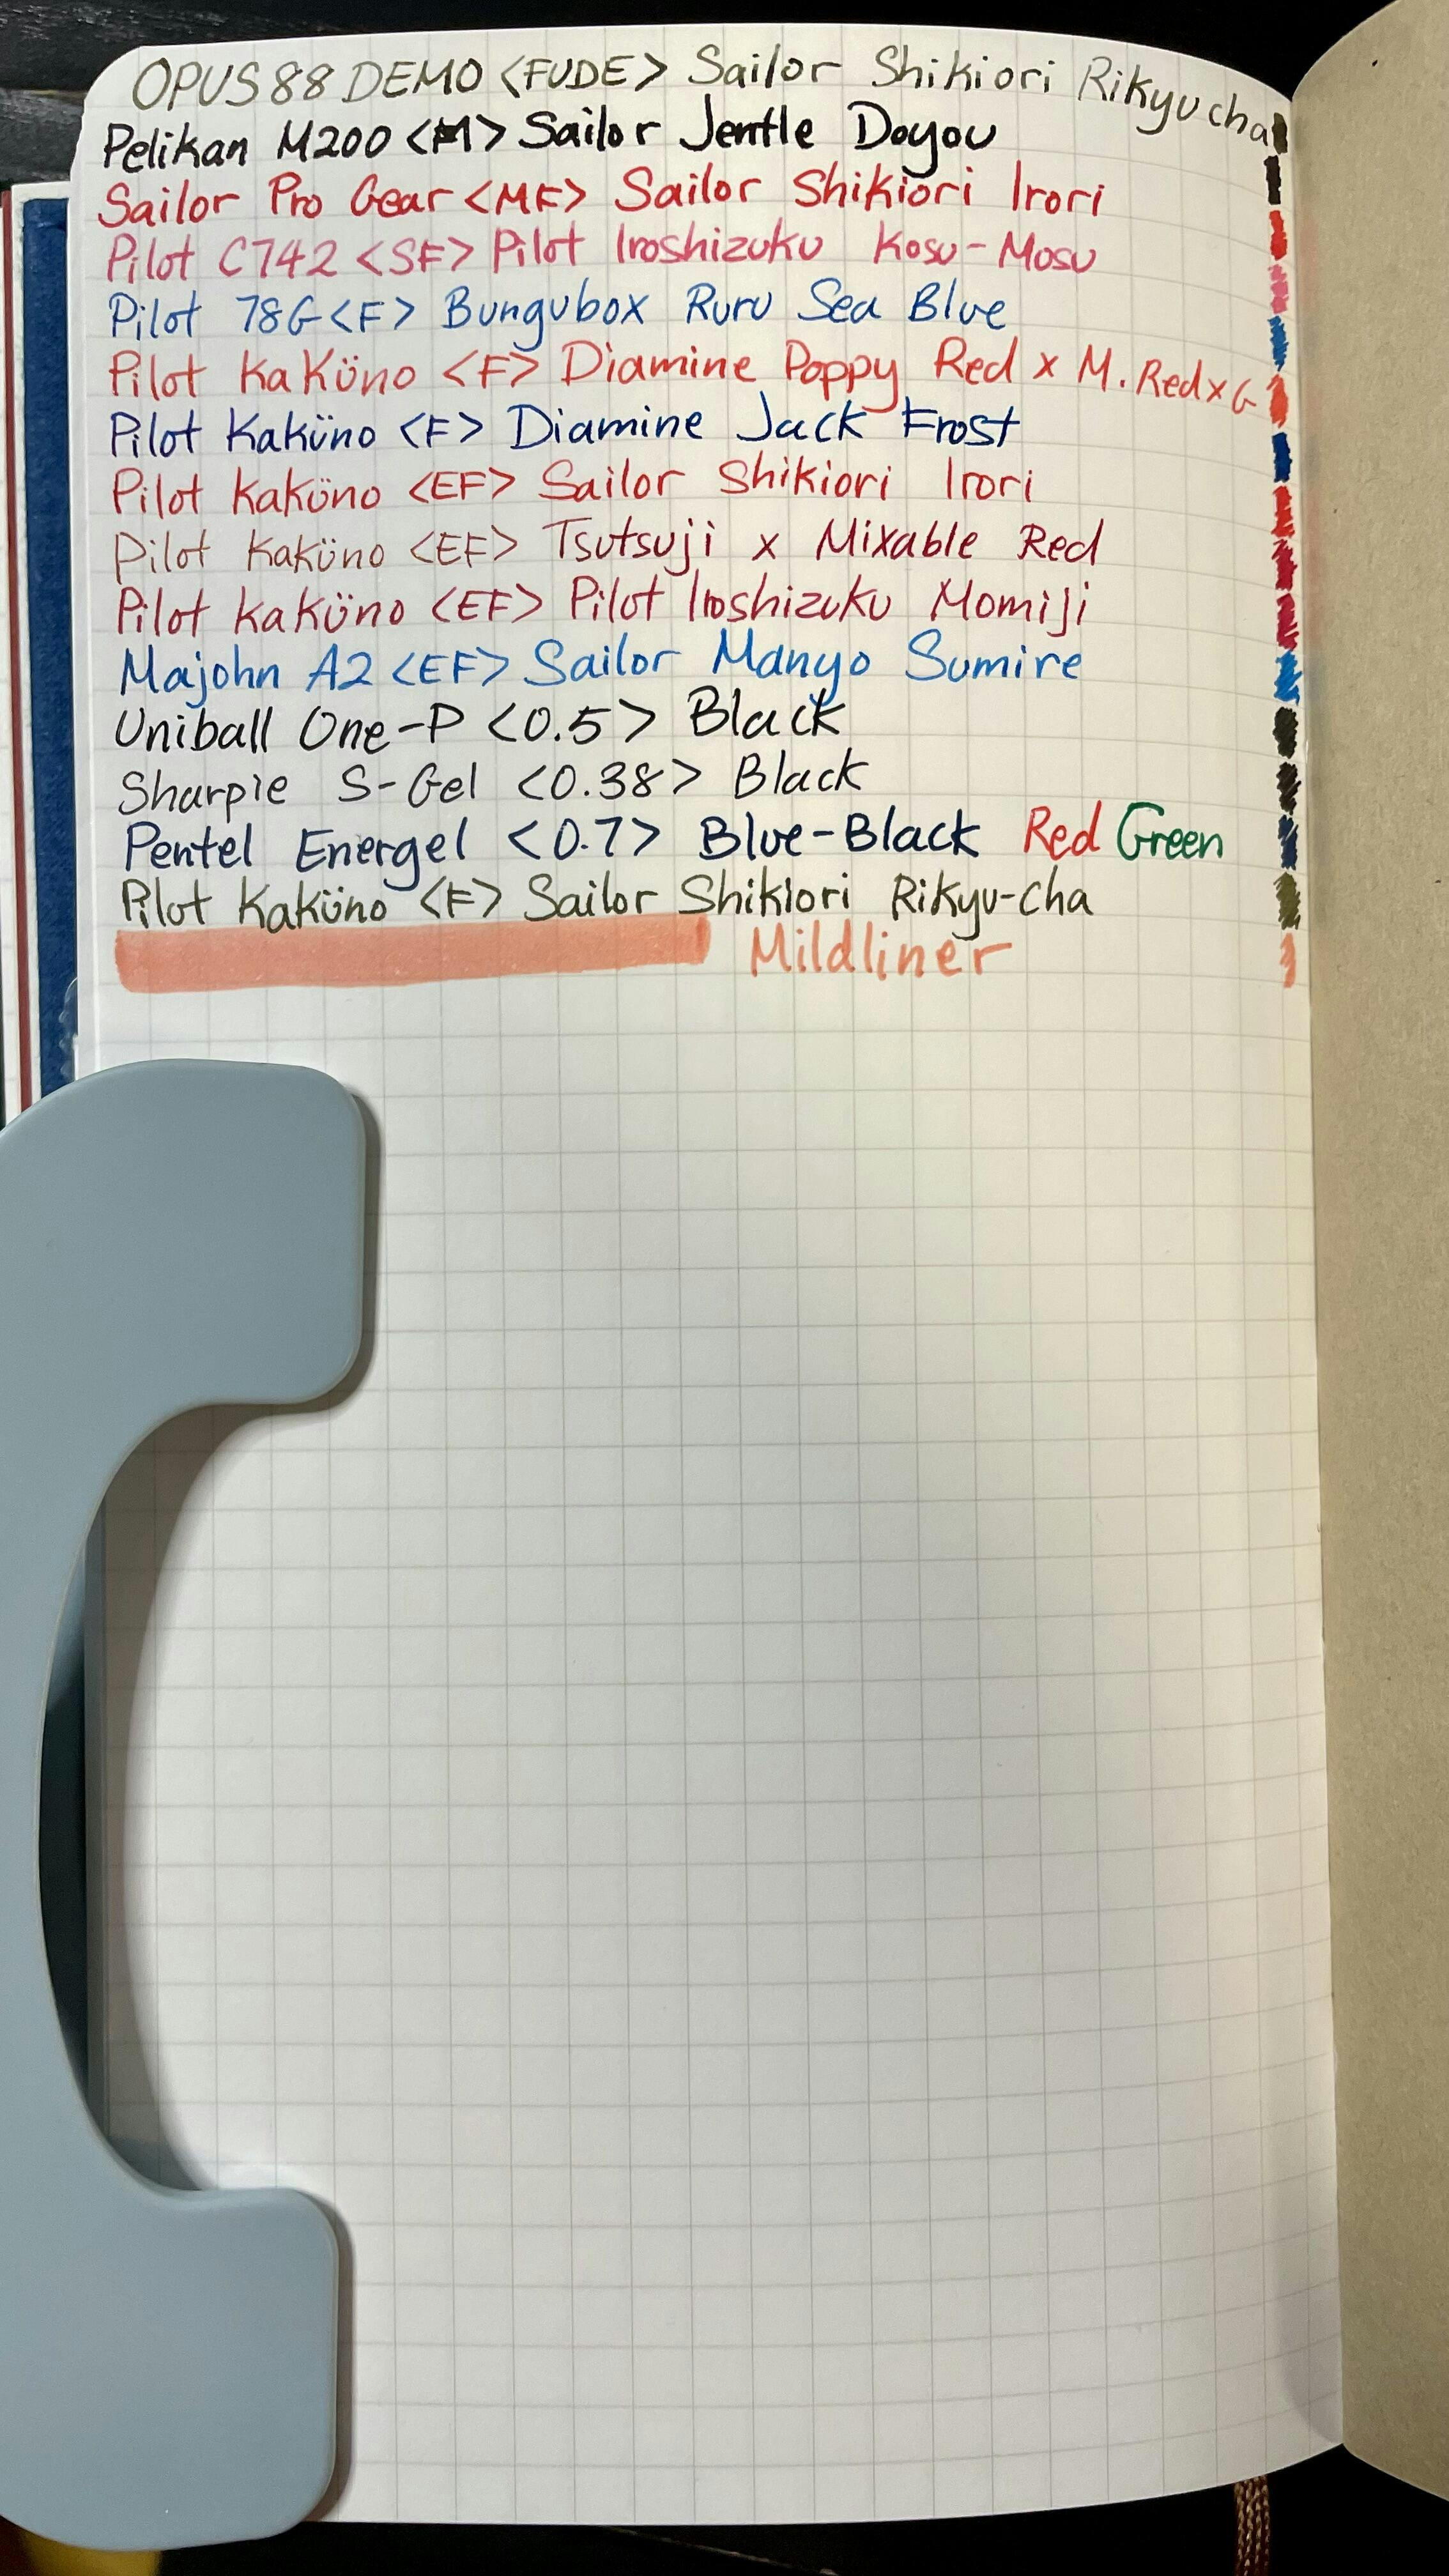 OPUS 88 DEMO <FUDE> Sailor Shikiori Rikyucha
Pelikan M200 <M> Sailor Jentle Doyou
Sailor Pro Gear <MF> Sailor Shikiori Irori
Pilot C742 <SF> Pilot Iroshizuku Kosu-Mosu
Pilot 78G <F> Bungubox Ruru Sea Blue
Pilot Kaküno <F> Diamine Poppy Red x M. Red x G
Pilot Kaküno <F> Diamine Jack Frost
Pilot Kaküno <EF> Sailor Shikiori Irori
Pilot Kaküno <EF> Tsutsuji x Mixable Red
Pilot Kaküno <EF> Pilot Iroshizuku Momiji
Majohn A2 <EF> Sailor Manyo Sumire
Uniball One-P <0.5> Black
Sharpie S-Gel <0.38> Black
Pentel Energel <0.7> Blue-Black Red Green
Pilot Kaküno <F> Sailor Shikiori Rikyu-Cha
Mildliner